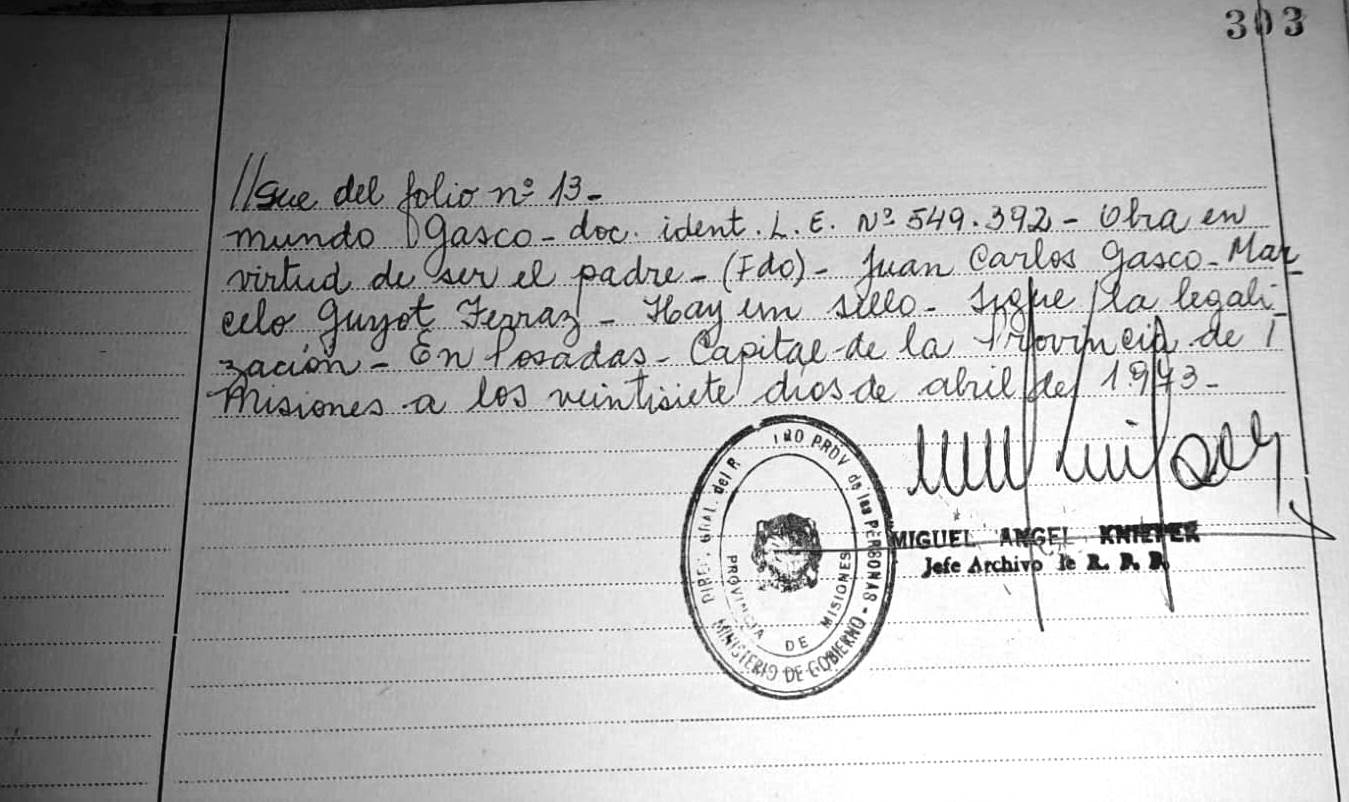 303
//Sue del folio nº 13-
mundo Gasco- doc. ident. L. E. Nº 549.392- Obra en
virtud de ser el padre- (Fdo)- Juan Carlos Gasco- Mar
celo Guyot Ferraz- Hay un sello- Sigue la legali-
zación- En Posadas- Capital de la Provincia de
Misiones a los veintisiete dias de abril de 1973-
DIREC. GRAL. del R PROV de las PERSONAS - MINISTERIO DE GOBIERNO
PROVINCIA DE MISIONES
MIGUEL ANGEL KNIEPER
Jefe Archivo de R. P. P.